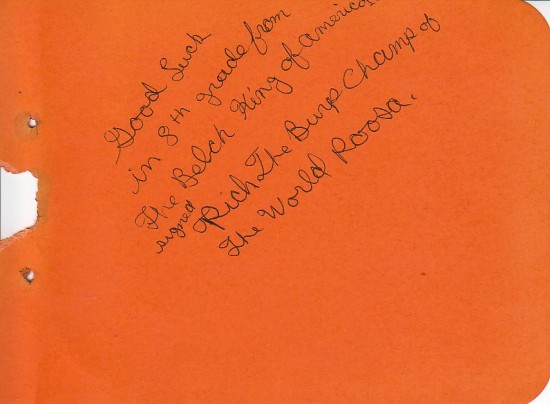 Good Luck
in 8th grade from
The Belch King of america
signed Rich The Burp Champ of
The World Roosa.